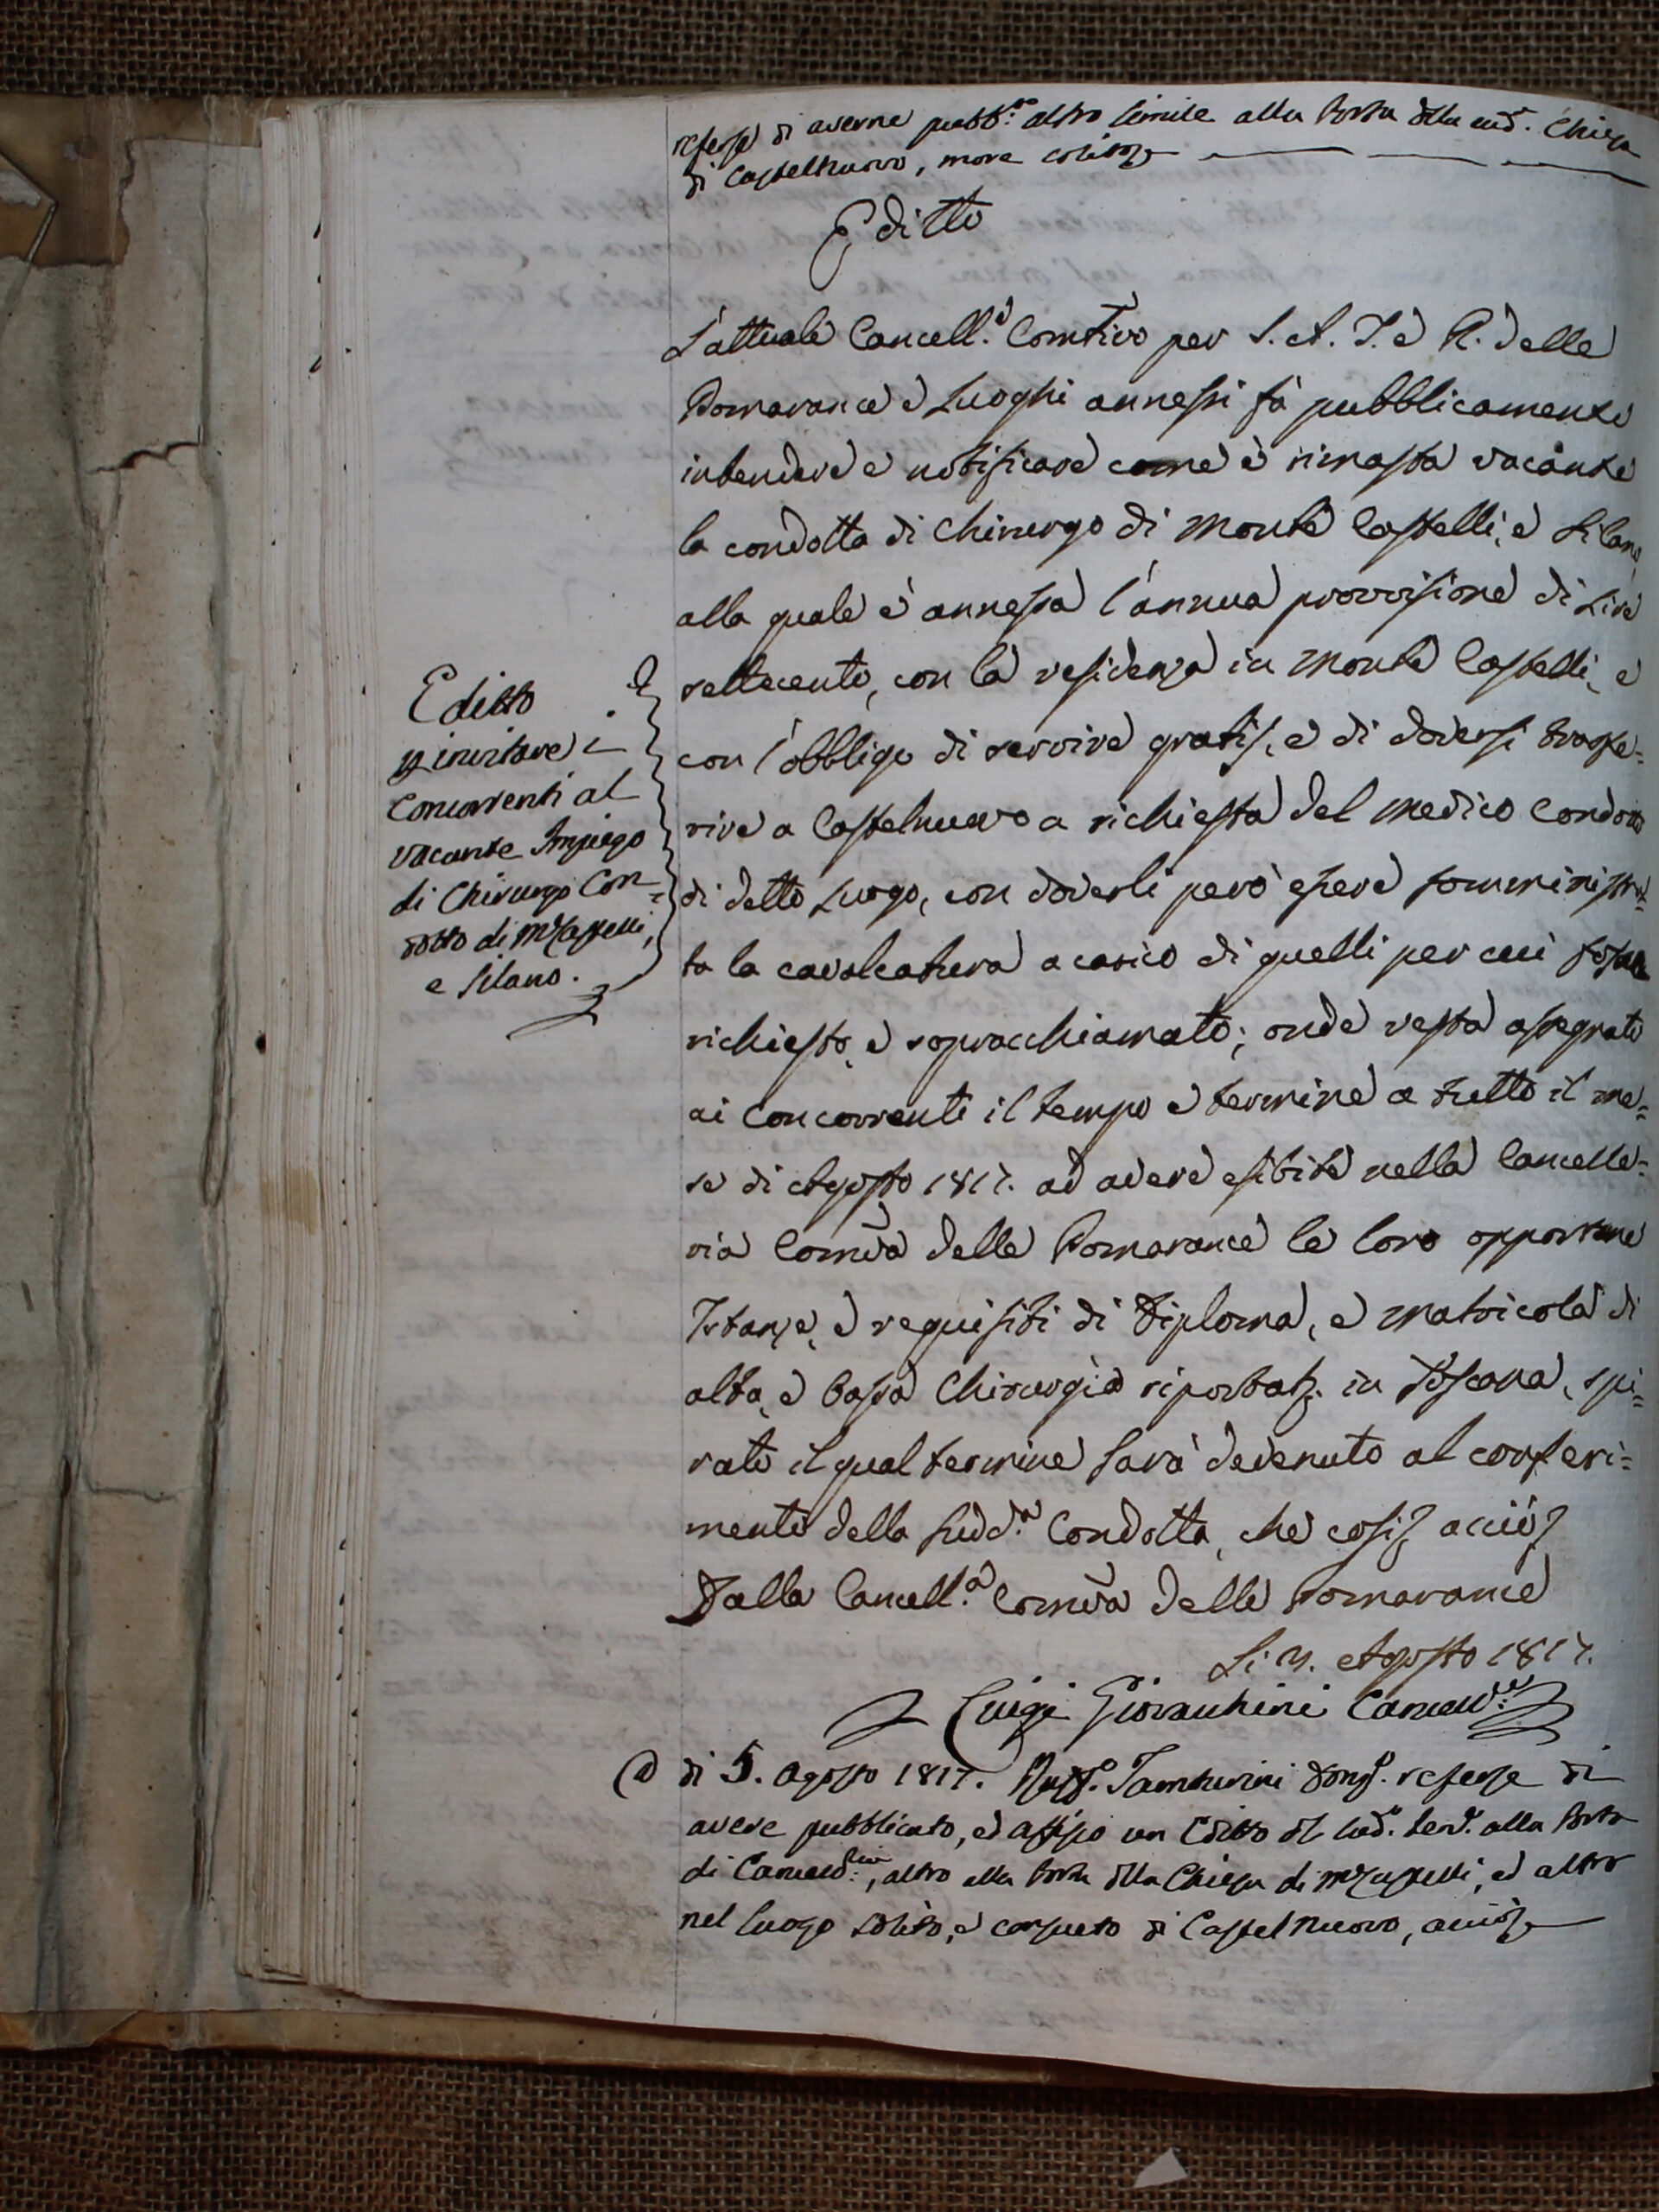 referse di averne pubb.to altro simile alla Porta della sud.a Chiesa
di Castelnuovo, more solito
Editto
L'attuale Cancell.e Comtivo per S. A. I. e R. delle
Pomarance e Luoghi annessi fà pubblicamente
intendere e notificare come è rimasta vacante
la condotta di Chirurgo di Monte Castelli, e Silano,
alla quale è annessa l'annua provvisione di Lire
settecento, con la residenza in Monte Castelli, e
con l'obbligo di servire gratis, e di doversi trasfe=
rire a Castelnuovo a richiesta del Medico Condotto
di detto Luogo, con doverli però essere somministra=
ta la cavalcatura a carico di quelli per cui fosse
richiesto, e sopracchiamato; onde resta assegnato
ai Concorrenti il tempo e termine a tutto il me=
se di Agosto 1817. ad avere esibite nella Cancelle=
ria Comva delle Pomarance le loro opportune
Istanze, e requisiti di Diploma, e Matricola di
alta, e bassa Chirurgia riportat. in Toscana, spi=
rato il qual termine sarà devenuto al conferi=
mento della Sudd.a Condotta, che cosi acciò
Dalla Cancell.a Comva delle Pomarance
Li Agosto 1817.
Luigi Giovannini Cancell.re
Editto
p invitare i
Concorrenti al
vacante Impiego
di Chirurgo Con=
dotto di M Castelli,
e Silano.
A di 5. Agosto 1817. Tamburini Donz. referse di
avere pubblicato, ed affisso un Editto del sud. ten. alla Porta
di Cancell.ria, altro alla Porta della Chiesa di M Castelli, ed altro
nel luogo solito, e consueto di Castel nuovo, acciò